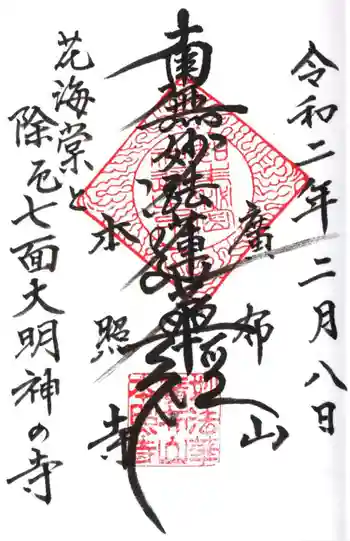 令和二年二月八日
廣布山
南無妙法蓮華経
本照寺
花海棠と
除厄七面大明神の寺